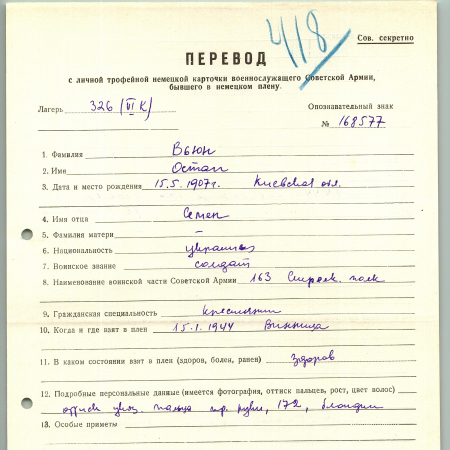 418
Сов. секретно
ПЕРЕВОД
с личной трофейной немецкой карточки военнослужащего Советской Армии,
бывшего в немецком плену.
Лагерь 326 (VI K) Опознавательный знак
№ 168577
1. Фамилия Вьюн
2. Имя Остап
3. Дата и место рождения 15.5.1907г. Киевская обл.
4. Имя отца Семен
5. Фамилия матери –
6. Национальность украинец
7. Воинское звание солдат
8. Наименование воинской части Советской Армии 163 Стрелк. полк
9. Гражданская специальность крестьянин
10. Когда и где взят в плен 15.1.1944 Винница
11. В каком состоянии взят в плен (здоров, болен, ранен) здоров
12. Подробные персональные данные (имеется фотография, оттиск пальцев, рост, цвет волос)
оттиск указ. пальца пр. руки, 172, блондин
13. Особые приметы